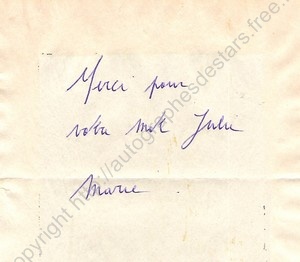 Merci pour
votre mot Julie
Marie
copyright http://autographesdestars.free.